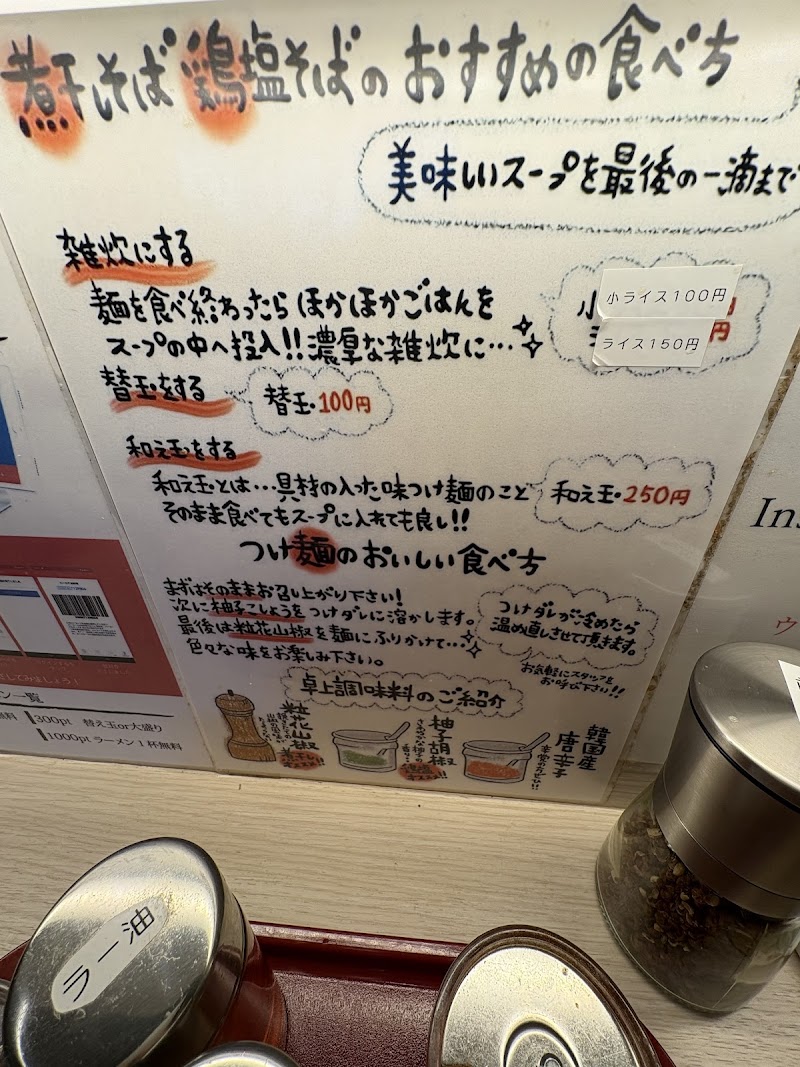 煮干しそば 鶏塩そばの おすすめの食べ方
美味しいスープを最後の一滴まで
雑炊にする
麺を食べ終わったら ほかほかごはんを
スープの中へ投入!!濃厚な雑炊に…
小ライス100円
ライス150円
替玉をする
替玉・100円
和え玉をする
和え玉とは…具材の入った味つけ麺のこと
そのまま食べてもスープに入れても良し!!
和え玉・250円
つけ麺のおいしい食べ方
まずはそのままお召し上がり下さい!
次に柚子こしょうをつけダレに溶かします。
最後は粒花山椒を麺にふりかけて…
色々な味をお楽しみ下さい。
つけダレが冷めたら
温め直しさせて頂きます。
お気軽にスタッフを
お呼び下さい!!
卓上調味料のご紹介
粒花山椒
柚子胡椒
韓国産
唐辛子
ン一覧
300pt 替え玉or大盛り
1000pt ラーメン1杯無料
Ins
ラー油